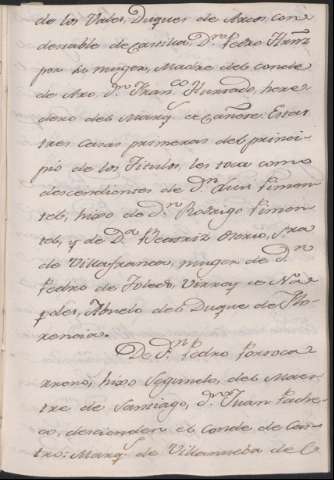 de los Veles, Duques de Arcos, con
destable de Castilla, D.n Pedro Frnz
por su muger, Madre del conde
de Aro D.n Fran.co Hurtado, here
dero del Marq.s de Cañete. Estas
tres casas primeras del princi-
pio de los Titulos, les toca como
descendientes de D.n Luis Pimen-
tel, hijo de D.n Rodrigo Pimen-
tel, y de D.a Beatriz Osorio, Sra
de Villafranca, muger de D.n
Pedro de Toledo, Virrey de Na
poles, Abuelo del Duque de Flo-
rencia.
De D.n Pedro Portoca
rrero, hijo Segundo, del Maes-
tre de Santiago, D.n Juan Pache-
co, descienden el Conde de Cas-
tro: Marq.s de Villanueba de